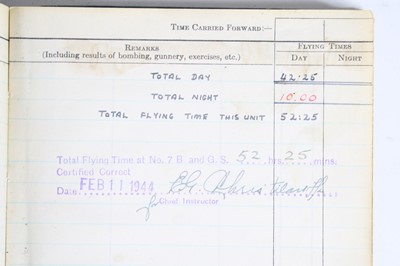 TIME CARRIED FORWARD:—
REMARKS
(Including results of bombing, gunnery, exercises, etc.)
FLYING TIMES
DAY NIGHT
TOTAL DAY 42.25
TOTAL NIGHT 10.00
TOTAL FLYING TIME THIS UNIT 52:25
Total Flying Time at No. 7 B. and G. S. 52 hrs. 25 mins.
Certified Correct
Date FEB 11 1944
for Chief Instructor